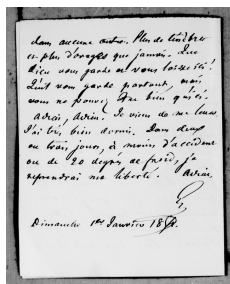 dans aucune autre. Plus de ténèbres
et plus d'orages que jamais. Que
Dieu vous garde et vous
vous garde partout, mais
vous ne pouvez être bien qu'ici
Adieu, Adieu. Je viens de me lever
J'ai très bien dormi. Dans deux
ou trois jours, à moins d'accident
ou de 20 degrés de froid, je
reprendrai ma liberté. Adieu.
G
Dimanche 1er Janvier